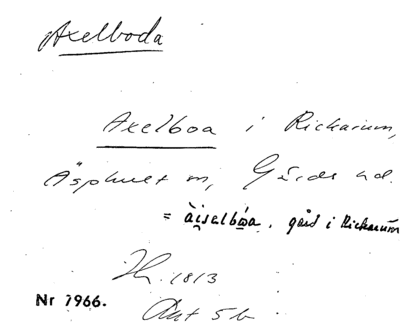 Axelboda
Axelboa i Rickarum,
Äsphult sn, Gärds hd.
= àiselbὼa, gård i Rickarum
1813
Nr 7966.
Ant 5 b